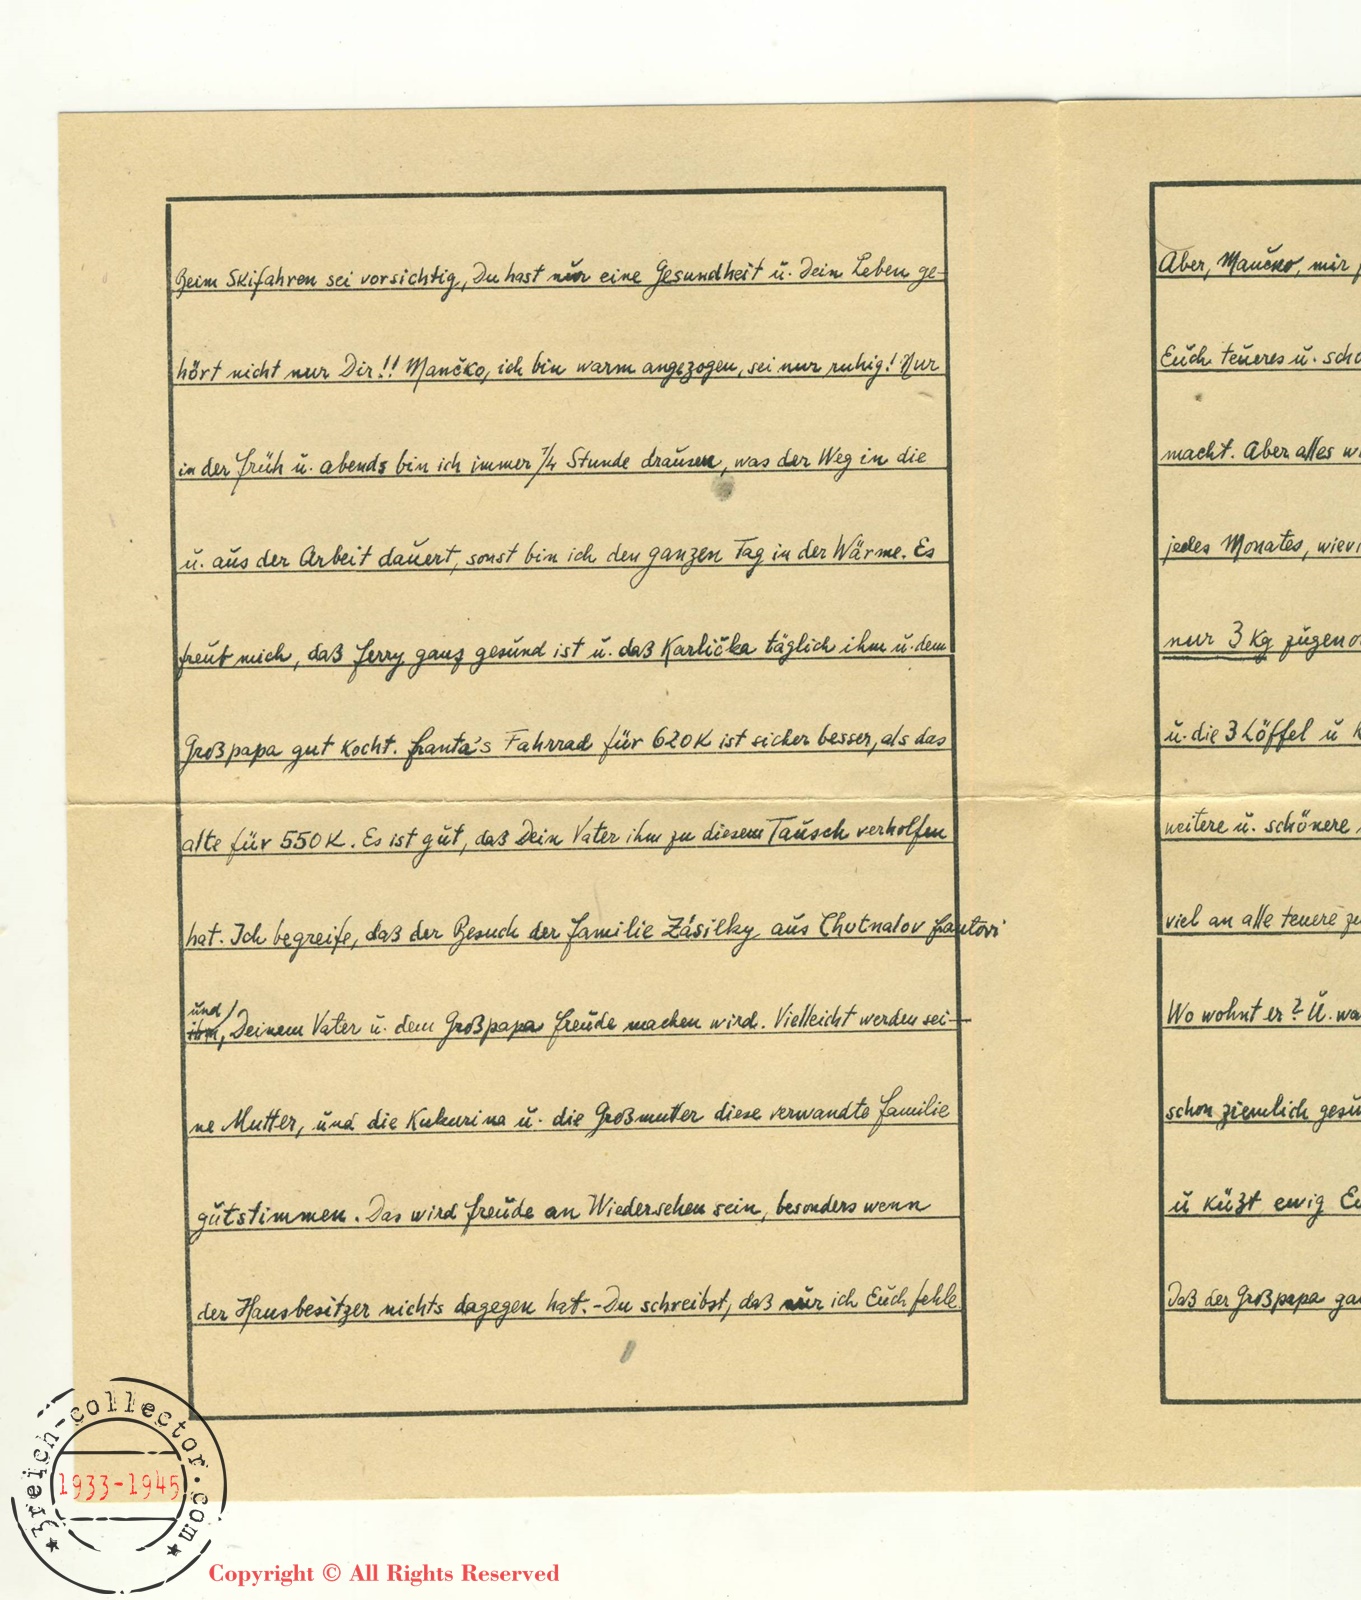 Beim Skifahren sei vorsichtig, Du hast nur eine Gesundheit u. Dein Leben ge-
hört nicht nur Dir!! Mančko, ich bin warm angezogen, sei nur ruhig! Nur
in der früh u. abends bin ich immer 1/4 Stunde drausen, was der Weg in die
u. aus der Arbeit dauert, sonst bin ich den ganzen Tag in der Wärme. Es
freut mich, daß Jerry ganz gesund ist u. daß Karlička täglich ihm u. dem
Großpapa gut kocht. Franta's Fahrrad für 620K ist sicher besser, als das
alte für 550K. Es ist gut, daß Dein Vater ihm zu diesem Tausch verholfen
hat. Ich begreife, daß der Besuch der Familie Zásilky aus Chotnatov Frantovi
und
ihm, Deinem Vater u. dem Großpapa Freude machen wird. Vielleicht werden sei-
ne Mutter, und die Kukurina u. die Großmutter diese verwandte Familie
gutstimmen. Das wird Freude an Wiedersehen sein, besonders wenn
der Hausbesitzer nichts dagegen hat. - Du schreibst, daß nur ich Euch fehle.
Aber, Mančko, mir
Euch teueres u.
macht. Aber alles
jedes Monates,
nur 3 Kg
u. die 3 Löffel u
weitere u. schönere
viel an alle teuere
Wo wohnt er? U.
schon ziemlich
u küßt ewig
Daß der Großpapa
3reich-collector.com
1933-1945
Copyright © All Rights Reserved